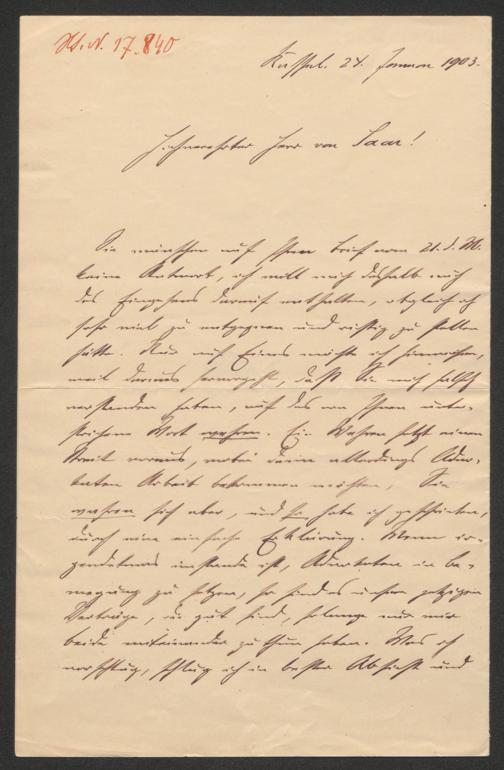 H.I.N. 17.840
Kassel. 24. Januar 1903.
Hochverehrter Herr von Saar!
Sie wünschen auf Ihren Brief vom 21. d. M.
keine Antwort, ich will mich deshalb auch
des Eingehens darauf enthalten, obgleich ich
sehr viel zu entgegnen und richtig zu stellen
hätte. Nur auf Eines möchte ich hinweisen,
weil daraus hervorgeht, daß Sie mich falsch
verstanden haben, auf das von Ihnen unter-
strichene Wort wehren. Ein Wehren setzt einen
Streit voraus, wobei dann allerdings Advo-
katen Arbeit bekommen möchten, Sie
wahren sich aber, und so habe ich geschrieben,
durch eine einfache Erklärung. Wenn ir-
gendetwas imstande ist, Advokaten in Be-
wegung zu setzen, so sind es unsere jetzigen
Verträge, die gut sind, solange nur wir
beide miteinander zu thun haben. Was ich
vorschlug, schlug ich in bester Absicht und